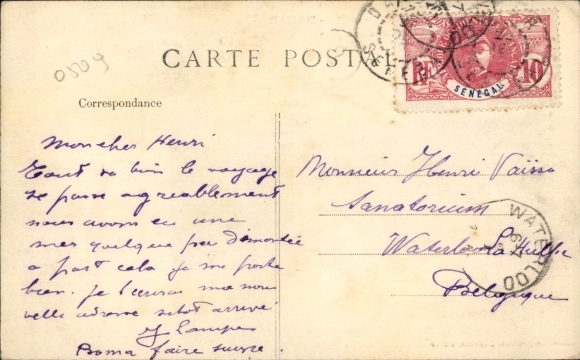 0509
CARTE POSTALE
SÉNÉGAL
10
Correspondance
Mon cher Henri
tout va bien le voyage
se passe agréablement
nous avons eu une
mer quelque peu démontée
a part cela je me porte
bien. je t'écrirai ma nou
velle adresse sitot arrivé
Boma faire suivre.
Monsieur Henri
Sanatorium
Waterloo La Hulpe
Belgique
WATERLOO